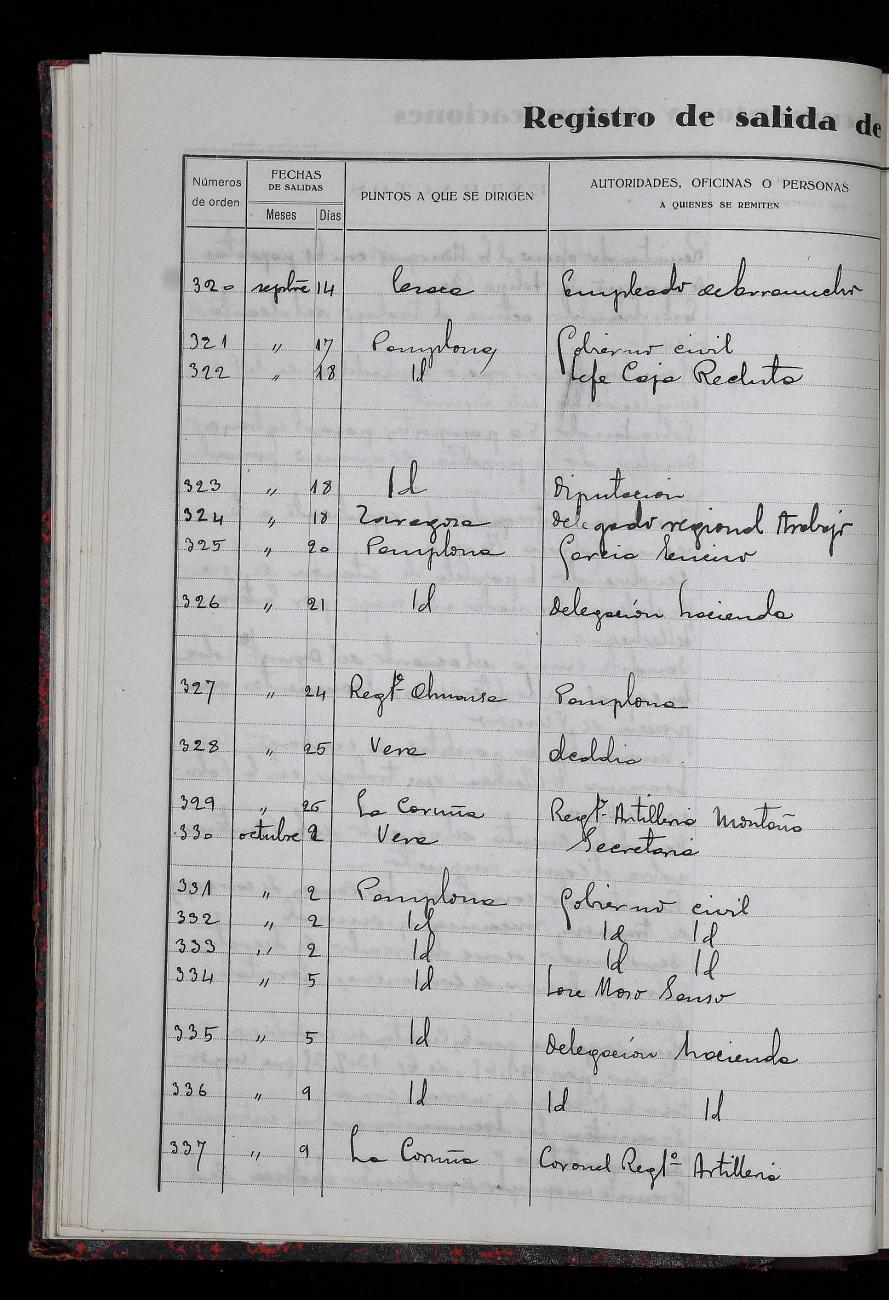 Registro de salida de
Números de orden FECHAS DE SALIDAS Meses Días PUNTOS A QUE SE DIRIGEN AUTORIDADES, OFICINAS O PERSONAS A QUIENES SE REMITEN
320 septbre 14 Empleado
321 " 17 Pamplona Gobierno civil
322 " 18 Id Jefe Caja Recluta
323 " 18 Id Diputación
324 " 18 Zaragoza Delegado regional Trabajo
325 " 20 Pamplona Garcia
326 " 21 Id Delegación hacienda
327 " 24 Regtº Almansa Pamplona
328 " 25 Vera alcaldia
329 " 26 La Coruña Regtº Artilleria Montaña
330 octubre 2 Vera Secretaria
331 " 2 Pamplona Gobierno civil
332 " 2 Id Id Id
333 " 2 Id Id Id
334 " 5 Id
335 " 5 Id Delegación hacienda
336 " 9 Id Id Id
337 " 9 La Coruña Coronel Regtº Artilleria